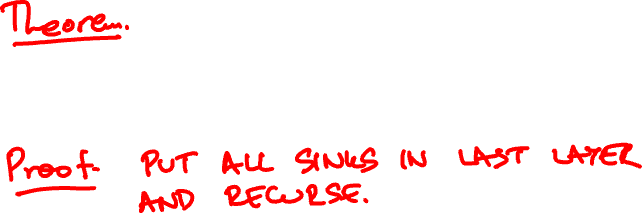 Theorem.
Proof. PUT ALL SINKS IN LAST LAYER
AND RECURSE.